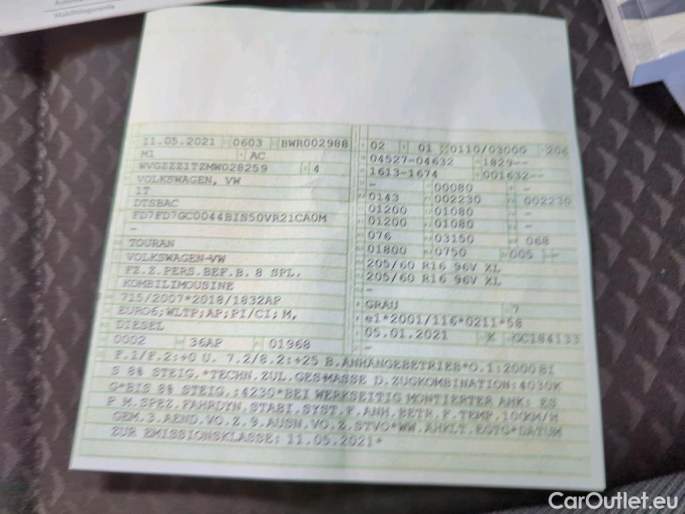 11.05.2021 0603 BWR002988
M1 AC
WVGZZZ1TZMW028259 4
VOLKSWAGEN, VW
1T
DTSBAC
FD7FD7GC0044BIN50VR21CA0M
-
TOURAN
VOLKSWAGEN-VW
FZ.Z.PERS.BEF.B. 8 SPL.
KOMBILIMOUSINE
715/2007*2018/1832AP
EURO6;WLTP;AP;PI/CI; M,
DIESEL
0002 36AP 01968
02 01 0110/03000 206
04527-04632 1829--
1613-1674 001632--
- 00080 - -
0143 002230 002230
01200 01080 -
01200 01080 -
076 03150 068
01800 0750 005 --
205/60 R16 96V XL
205/60 R16 96V XL
-
GRAU 7
e1*2001/116*0211*58
05.01.2021 K GC184133
F.1/F.2:+0 U. 7.2/8.2:+25 B.ANHÄNGEBETRIEB*O.1:2000 BI
S 8% STEIG.*TECHN.ZUL.GES-MASSE D.ZUGKOMBINATION:4030K
G*BIS 8% STEIG.:4230*BEI WERKSEITIG MONTIERTER AHK: ES
P M.SPEZ.FAHRDYN.STABI.SYST.F.ANH.BETR.F.TEMP.100KM/H
GEM.3.AEND.VO.Z.9.AUSN.VO.Z.STVO*WW.AHKLT.EGTG*DATUM
ZUR EMISSIONSKLASSE: 11.05.2021*
CarOutlet.eu